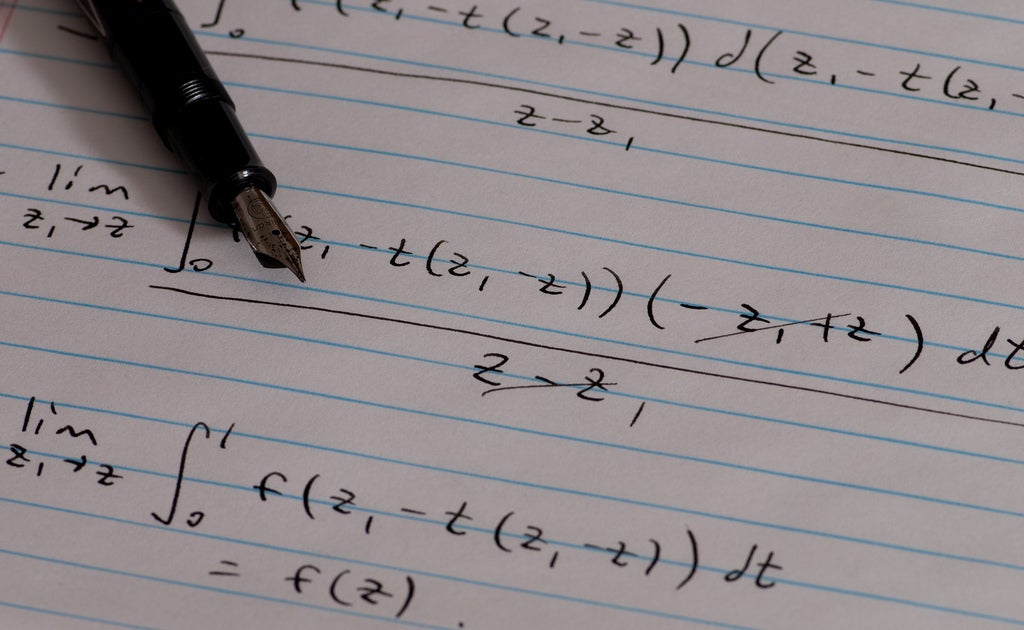 ∫₀ (z₁ - t(z₁ - z)) d(z₁ - t(z₁ -
z - z₁
lim z₁→z ∫₀ (z₁ - t(z₁ - z))(-z₁ + z) dt
z - z₁
lim z₁→z ∫₀¹ f(z₁ - t(z₁ - z)) dt
= f(z).